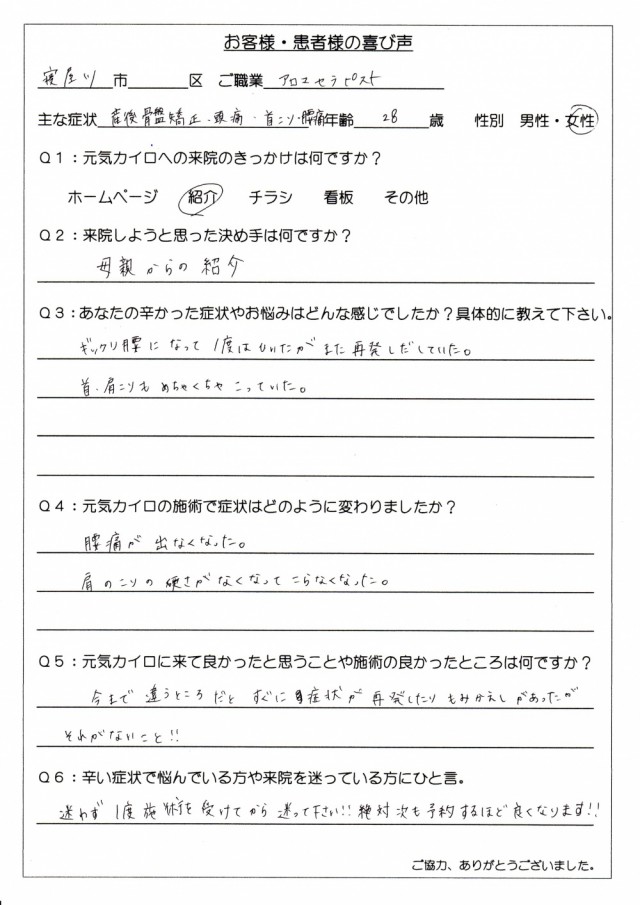 お客様・患者様の喜び声
寝屋川市 区 ご職業 アロマセラピスト
主な症状 産後骨盤矯正・頭痛・首こり・腰痛 年齢 28 歳 性別 男性・女性
Q1：元気カイロへの来院のきっかけは何ですか？
ホームページ 紹介 チラシ 看板 その他
Q2：来院しようと思った決め手は何ですか？
母親からの紹介
Q3：あなたの辛かった症状やお悩みはどんな感じでしたか？具体的に教えて下さい。
ギックリ腰になって1度はひいたがまた再発しだしていた。
首、肩こりもめちゃくちゃこっていた。
Q4：元気カイロの施術で症状はどのように変わりましたか？
腰痛が出なくなった。
肩のこりの硬さがなくなってこらなくなった。
Q5：元気カイロに来て良かったと思うことや施術の良かったところは何ですか？
今まで違うところだとすぐに症状が再発したりもみかえしがあったが
それがないこと!!
Q6：辛い症状で悩んでいる方や来院を迷っている方にひと言。
迷わず1度施術を受けてから迷って下さい!!絶対次も予約するほど良くなります!!
ご協力、ありがとうございました。